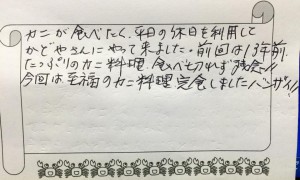 カニが食べたく、平日の休日を利用して
かどやさんにやって来ました。前回は13年前.
たっぷりのカニ料理、食べ切れず残念!!
今回は至福のカニ料理完食しましたバンザイ!!